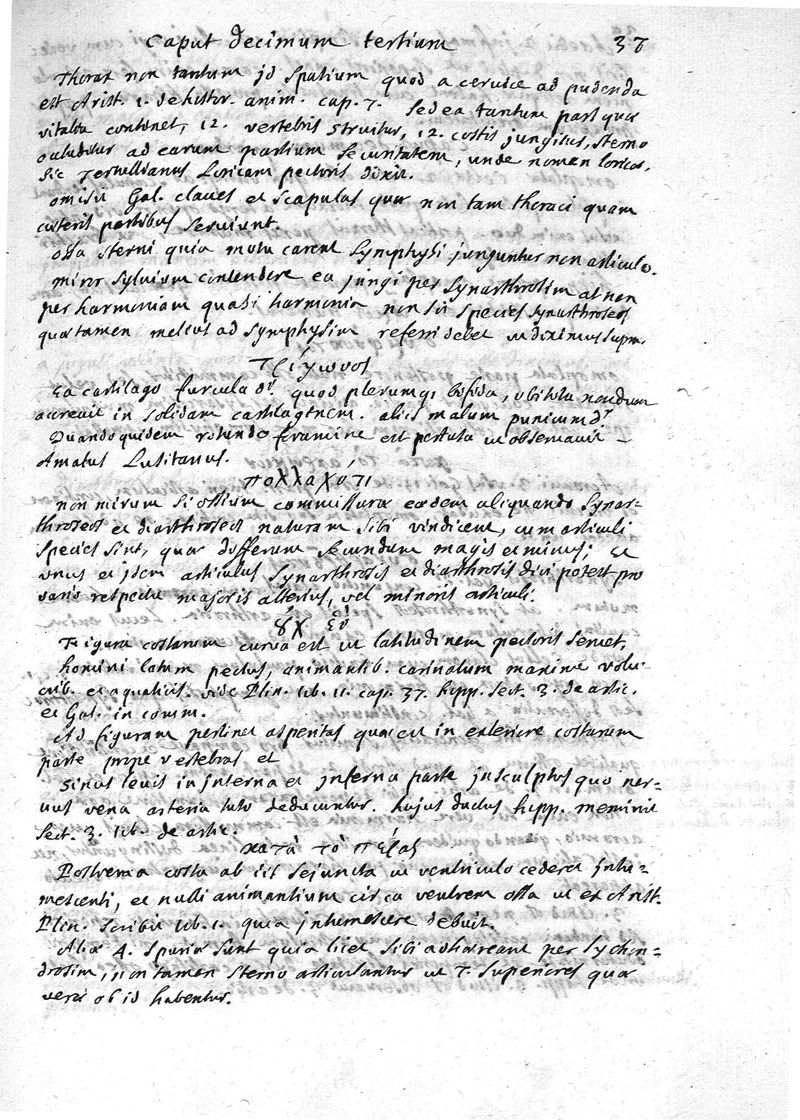 Caput decimum tertium 37
Thorax non tantum id spatium quod a cervice ad pudenda
est Arist. 1. de histor. anim. cap. 7. sed ea tantum pars quæ
vitalia continet, 12. vertebris struitur, 12. costis jungitur, sterno
ocluditur ad earum partium securitatem, unde nomen loricæ.
sic Tertullianus Loricam pectoris dixit.
omisit Gal. claves et scapulas quæ non tam thoraci quam
cæteris partibus serviunt.
Ossa sterni quia motu carent Symphysi junguntur non articulo.
miror Sylvium contendere ea jungi per Synarthrosim at non
per harmoniam quasi harmonia non sit species synarthroseos
quæ tamen melius ad Symphysim referri debet ut diximus supra.
Τρίγωνος
Ea cartilago furcula dr. quod plerumq; bifida, ubi tota nondum
accrevit in solidam cartilaginem. aliis malum punicum dr.
Quandoquidem rotundo foramine est pertusa ut observavit
Amatus Lusitanus.
πολλαχότι
non mirum si ossium commissuræ eædem aliquando Synar=
throseos et diarthroseos naturam sibi vindicent, cum articuli
species sint, quæ differunt secundum magis et minus; et
unus et idem articulus Synarthrosis et diarthrosis dici potest pro
vario respectu majoris alterius, vel minoris articuli.
ȣ̓χ ἑν
Figura costarum curva est ut latitudinem pectoris servet,
homini latum pectus, animantib. carinatum maxime volu-
crib. et aquaticis. vide Plin. lib. 11. cap. 37. hipp. sect. 3. de artic.
et Gal. in comm.
Ad figuram pertinet asperitas quæ est in exteriore costarum
parte prope vertebras et
sinus levis in interna et inferna parte insculptus quo ner-
vus vena arteria tuto deducuntur. hujus ductus hipp. meminit
sect. 3. lib. de artic.
κατὰ τὸ πέρας
Postrema costa ab iis sejuncta ut ventriculo cederet intu-
mescenti, et nulli animantium circa ventrem ossa ut ex Arist.
Plin. scribit lib. 1. quia intumescere debuit.
Aliæ 4. spuriæ sunt quia licet sibi adhæreant per Sychon=
drosim, non tamen sterno articulantur ut 7. superiores quæ
veræ ob id habentur.